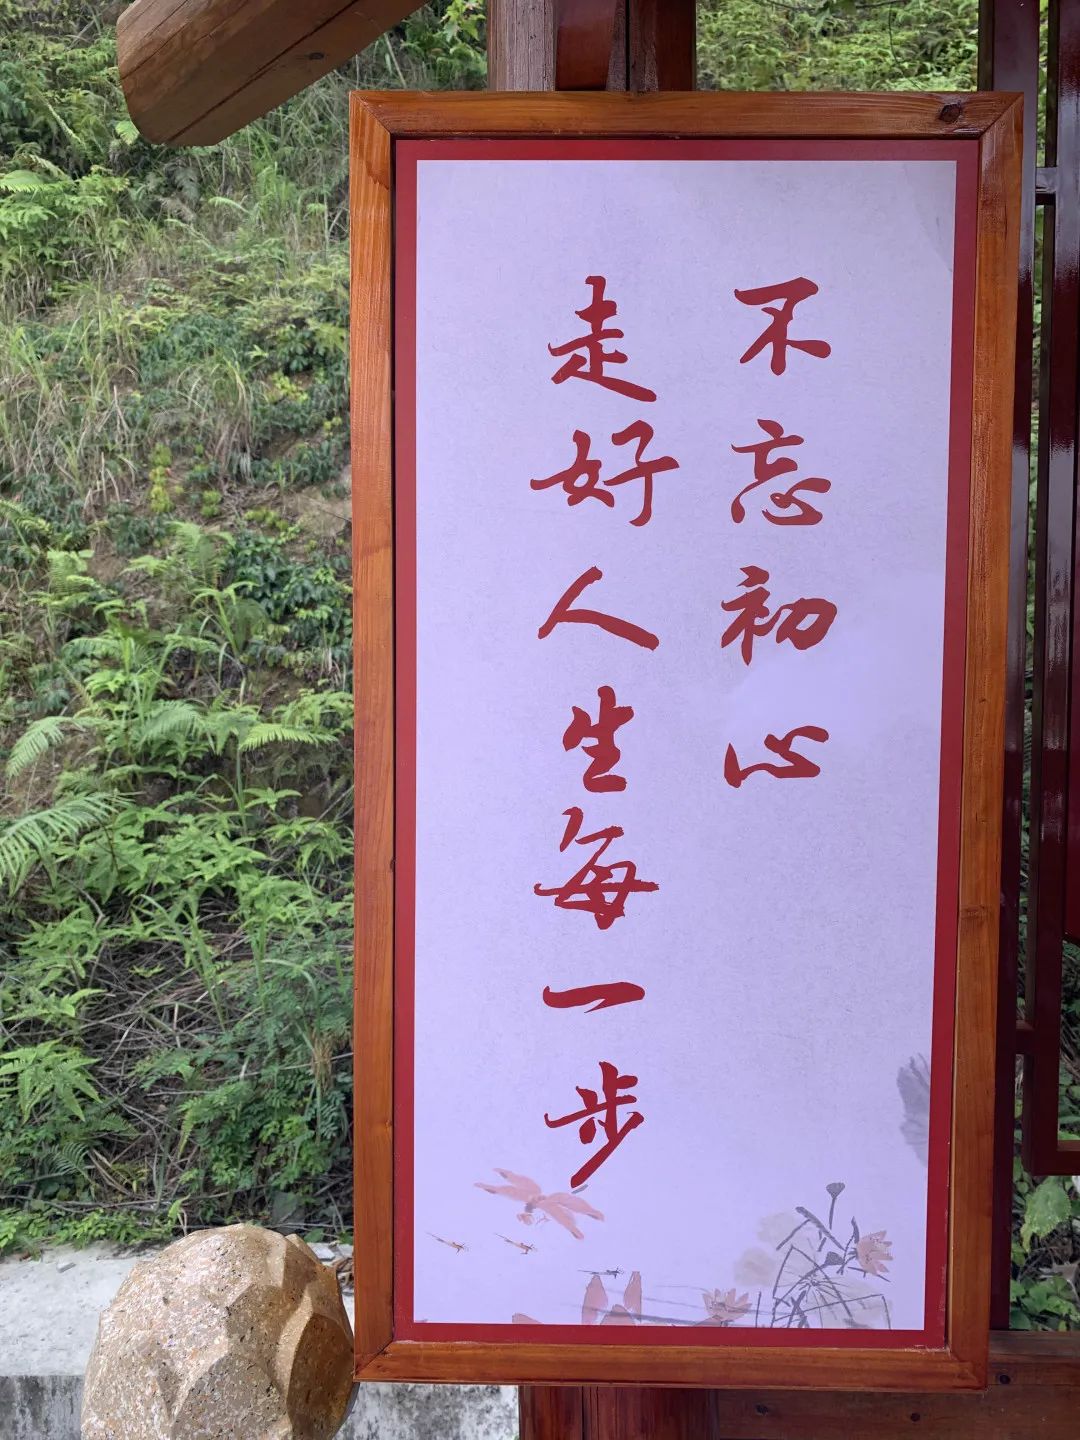 不忘初心
走好人生每一步